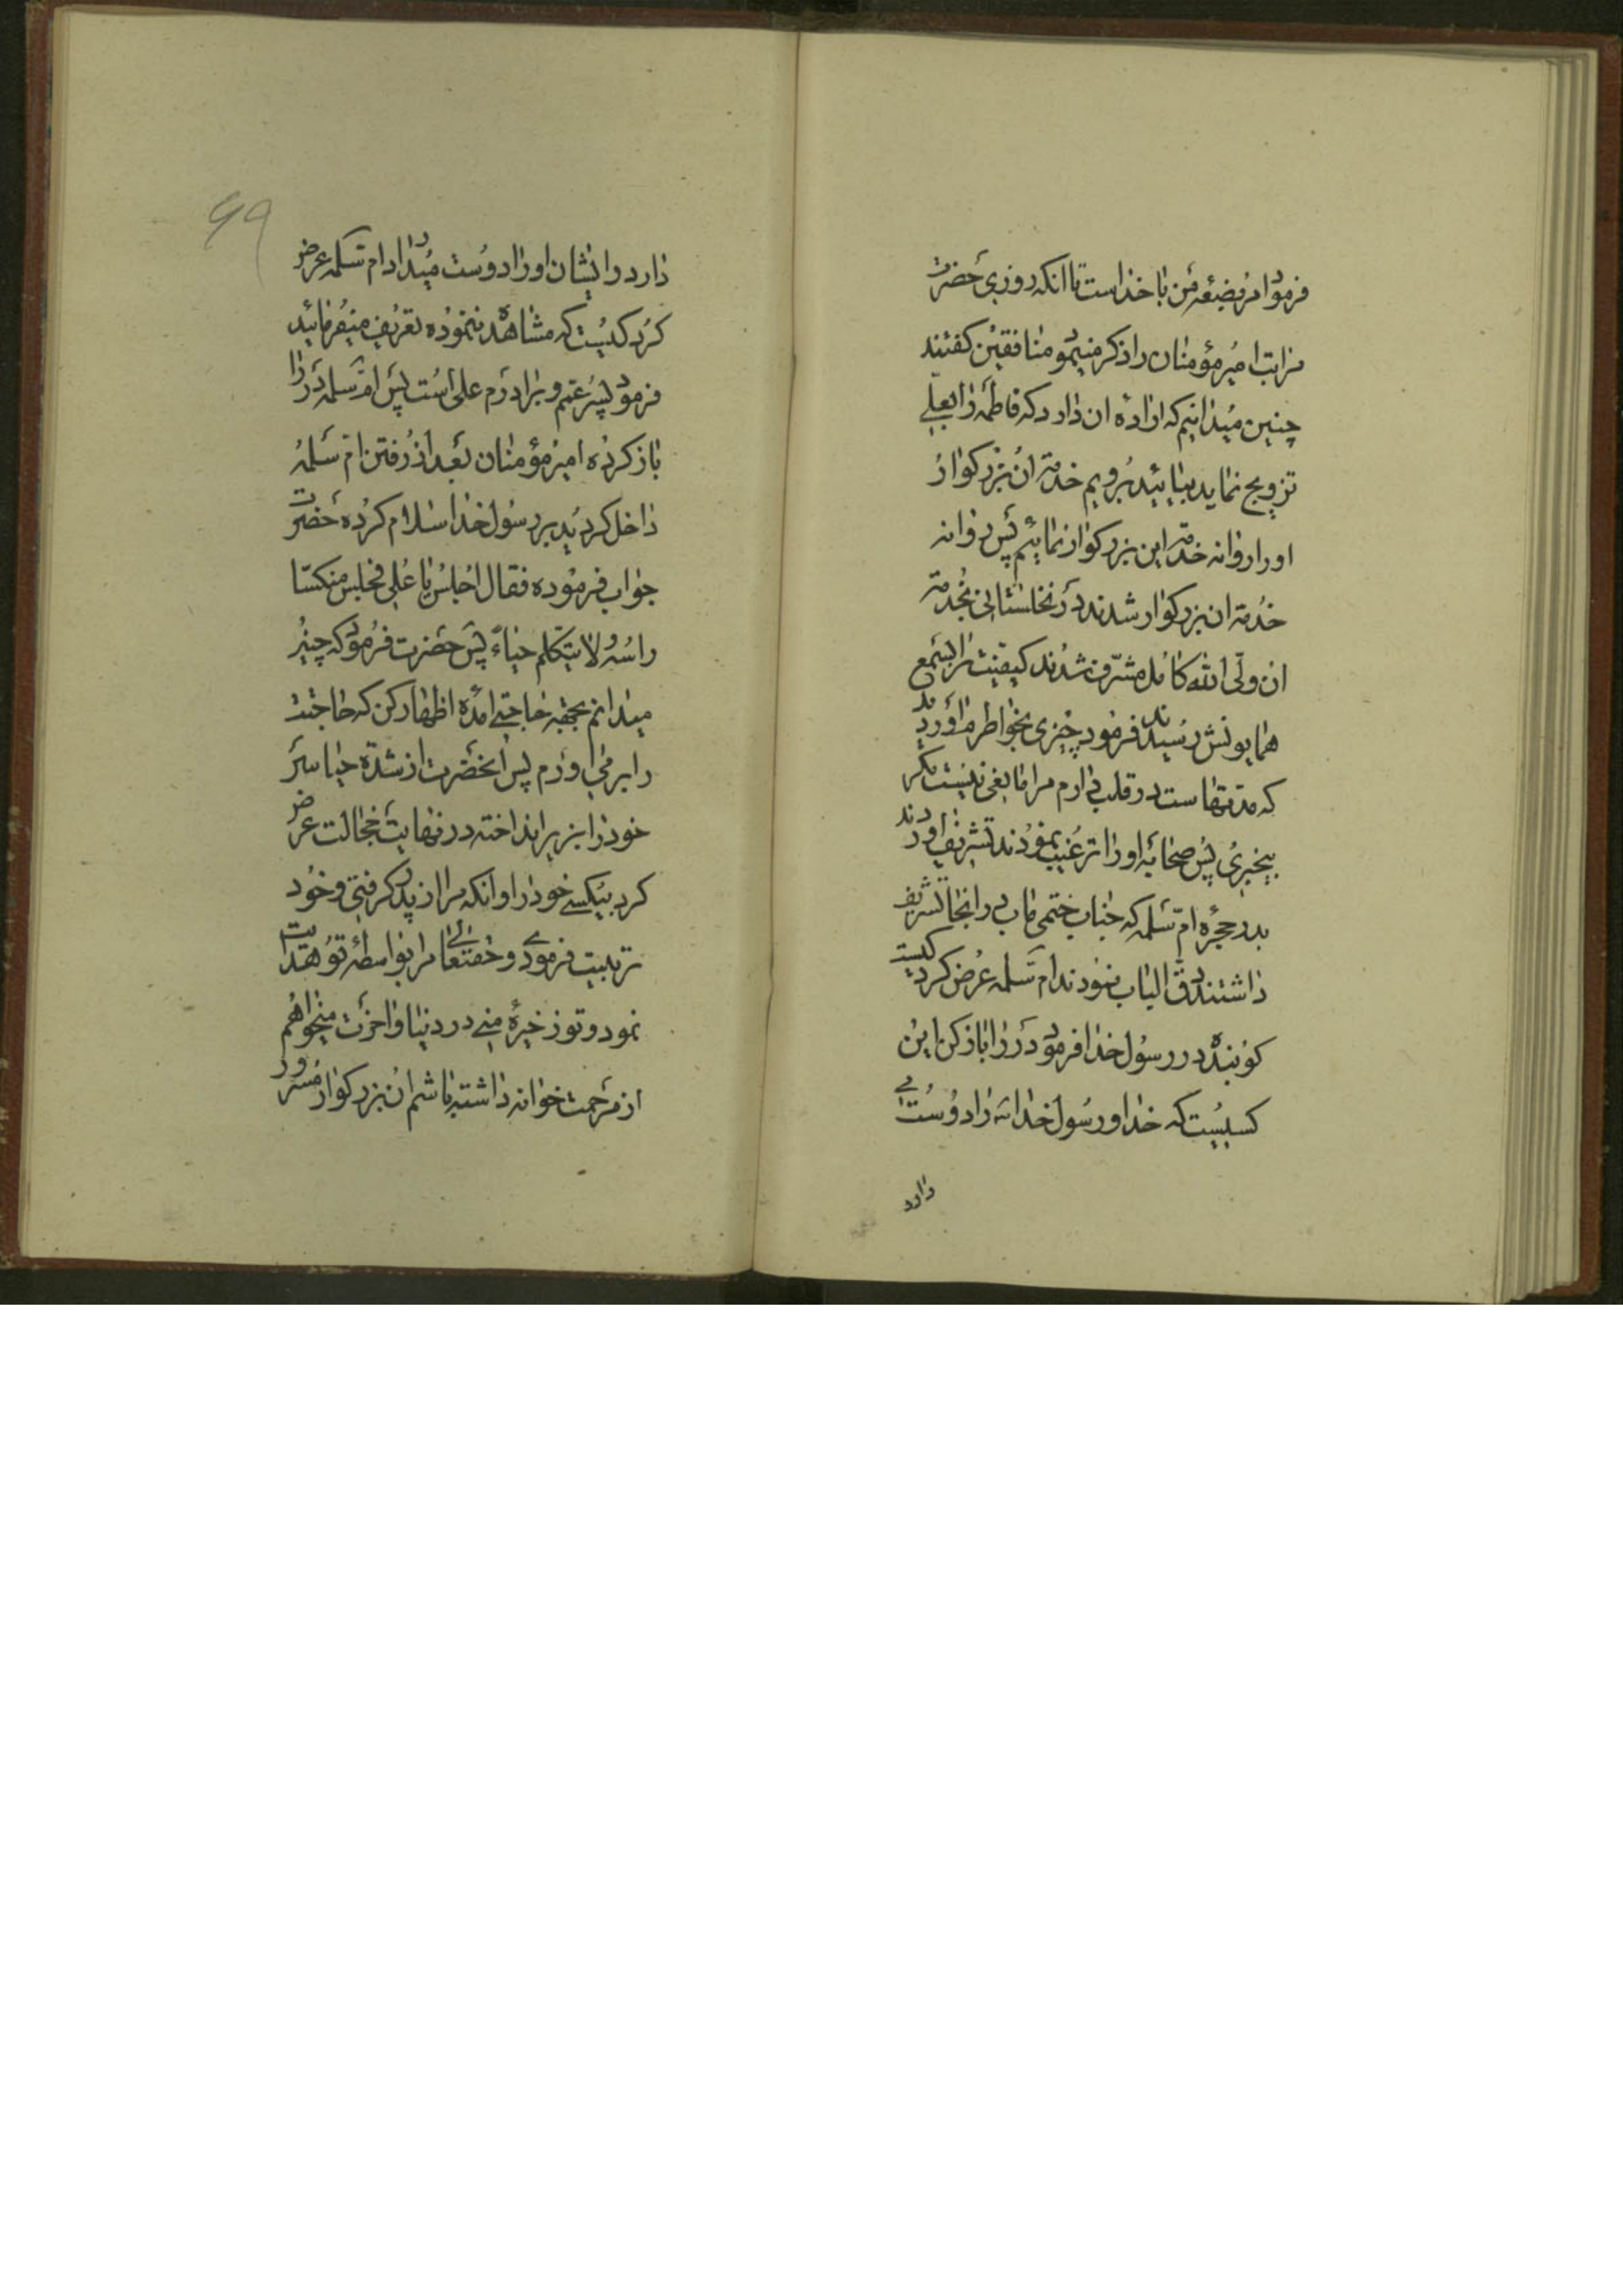 فرمود امر بضعه من با خداست تا انکه روزی حضرت
مراتب امیر مؤمنان را ذکر مینمو منافقین کفتند
چنین میدانیم که اراده ان دارد که فاطمه را بعلی
تزویج نماید بیائید برویم خدمة ان بزرکوار
اورا روانه خدمة این بزرکوار نمائیم پس روانه
خدمة ان بزرکوار شدند در نخلستانی بخدمة
ان ولی الله کامل مشرف شدند کیفیت را بسمع
همایونش رسیدند فرمود چیزی بخواطرم اوردید
که مدتهاست در قلب دارم مرا مانعی نیست مکر
بیخیری پس صحابه اورا ترغیب نمودند تشریف اوردند
بدر حجره ام سلمه که جناب ختمی ماب در انجا تشریف
داشتند دق الباب نمودند ام سلمه عرض کرد کیست
کوبنده در رسول خدا فرمود در را باز کن این
کسیست که خدا و رسول خدا اورا دوست
دارد
۶۹
دارد و ایشان اورا دوست میدارد ام سلمه عرض
کرد کیست که مشاهده ننموده تعریف میفرمائید
فرمود پسر عم و برادرم علی است پس ام سلمه در را
باز کرده امیر مؤمنان بعد از رفتن ام سلمه
داخل کردید بر رسول خدا سلام کرده حضرت
جواب فرموده فقال اجلس یا علی فجلس منکسا
راسه ولا یتکلم حیاء پس حضرت فرمود که چنین
میدانم بجهة حاجتی امده اظهار کن که حاجتت
را برمی اورم پس انحضرت از شدة حیا سر
خود را بزیر انداخته در نهایت خجالت عرض
کرد بیکسی خود را و انکه مرا از پدر کرفتی و خود
تربیت فرمودی و حقتعالی مرا بواسطه تو هدایت
نمود و تو ذخیره منی در دنیا و اخرت میخواهم
از مرحمت خوانه داشته باشم ان بزرکوار مسرور